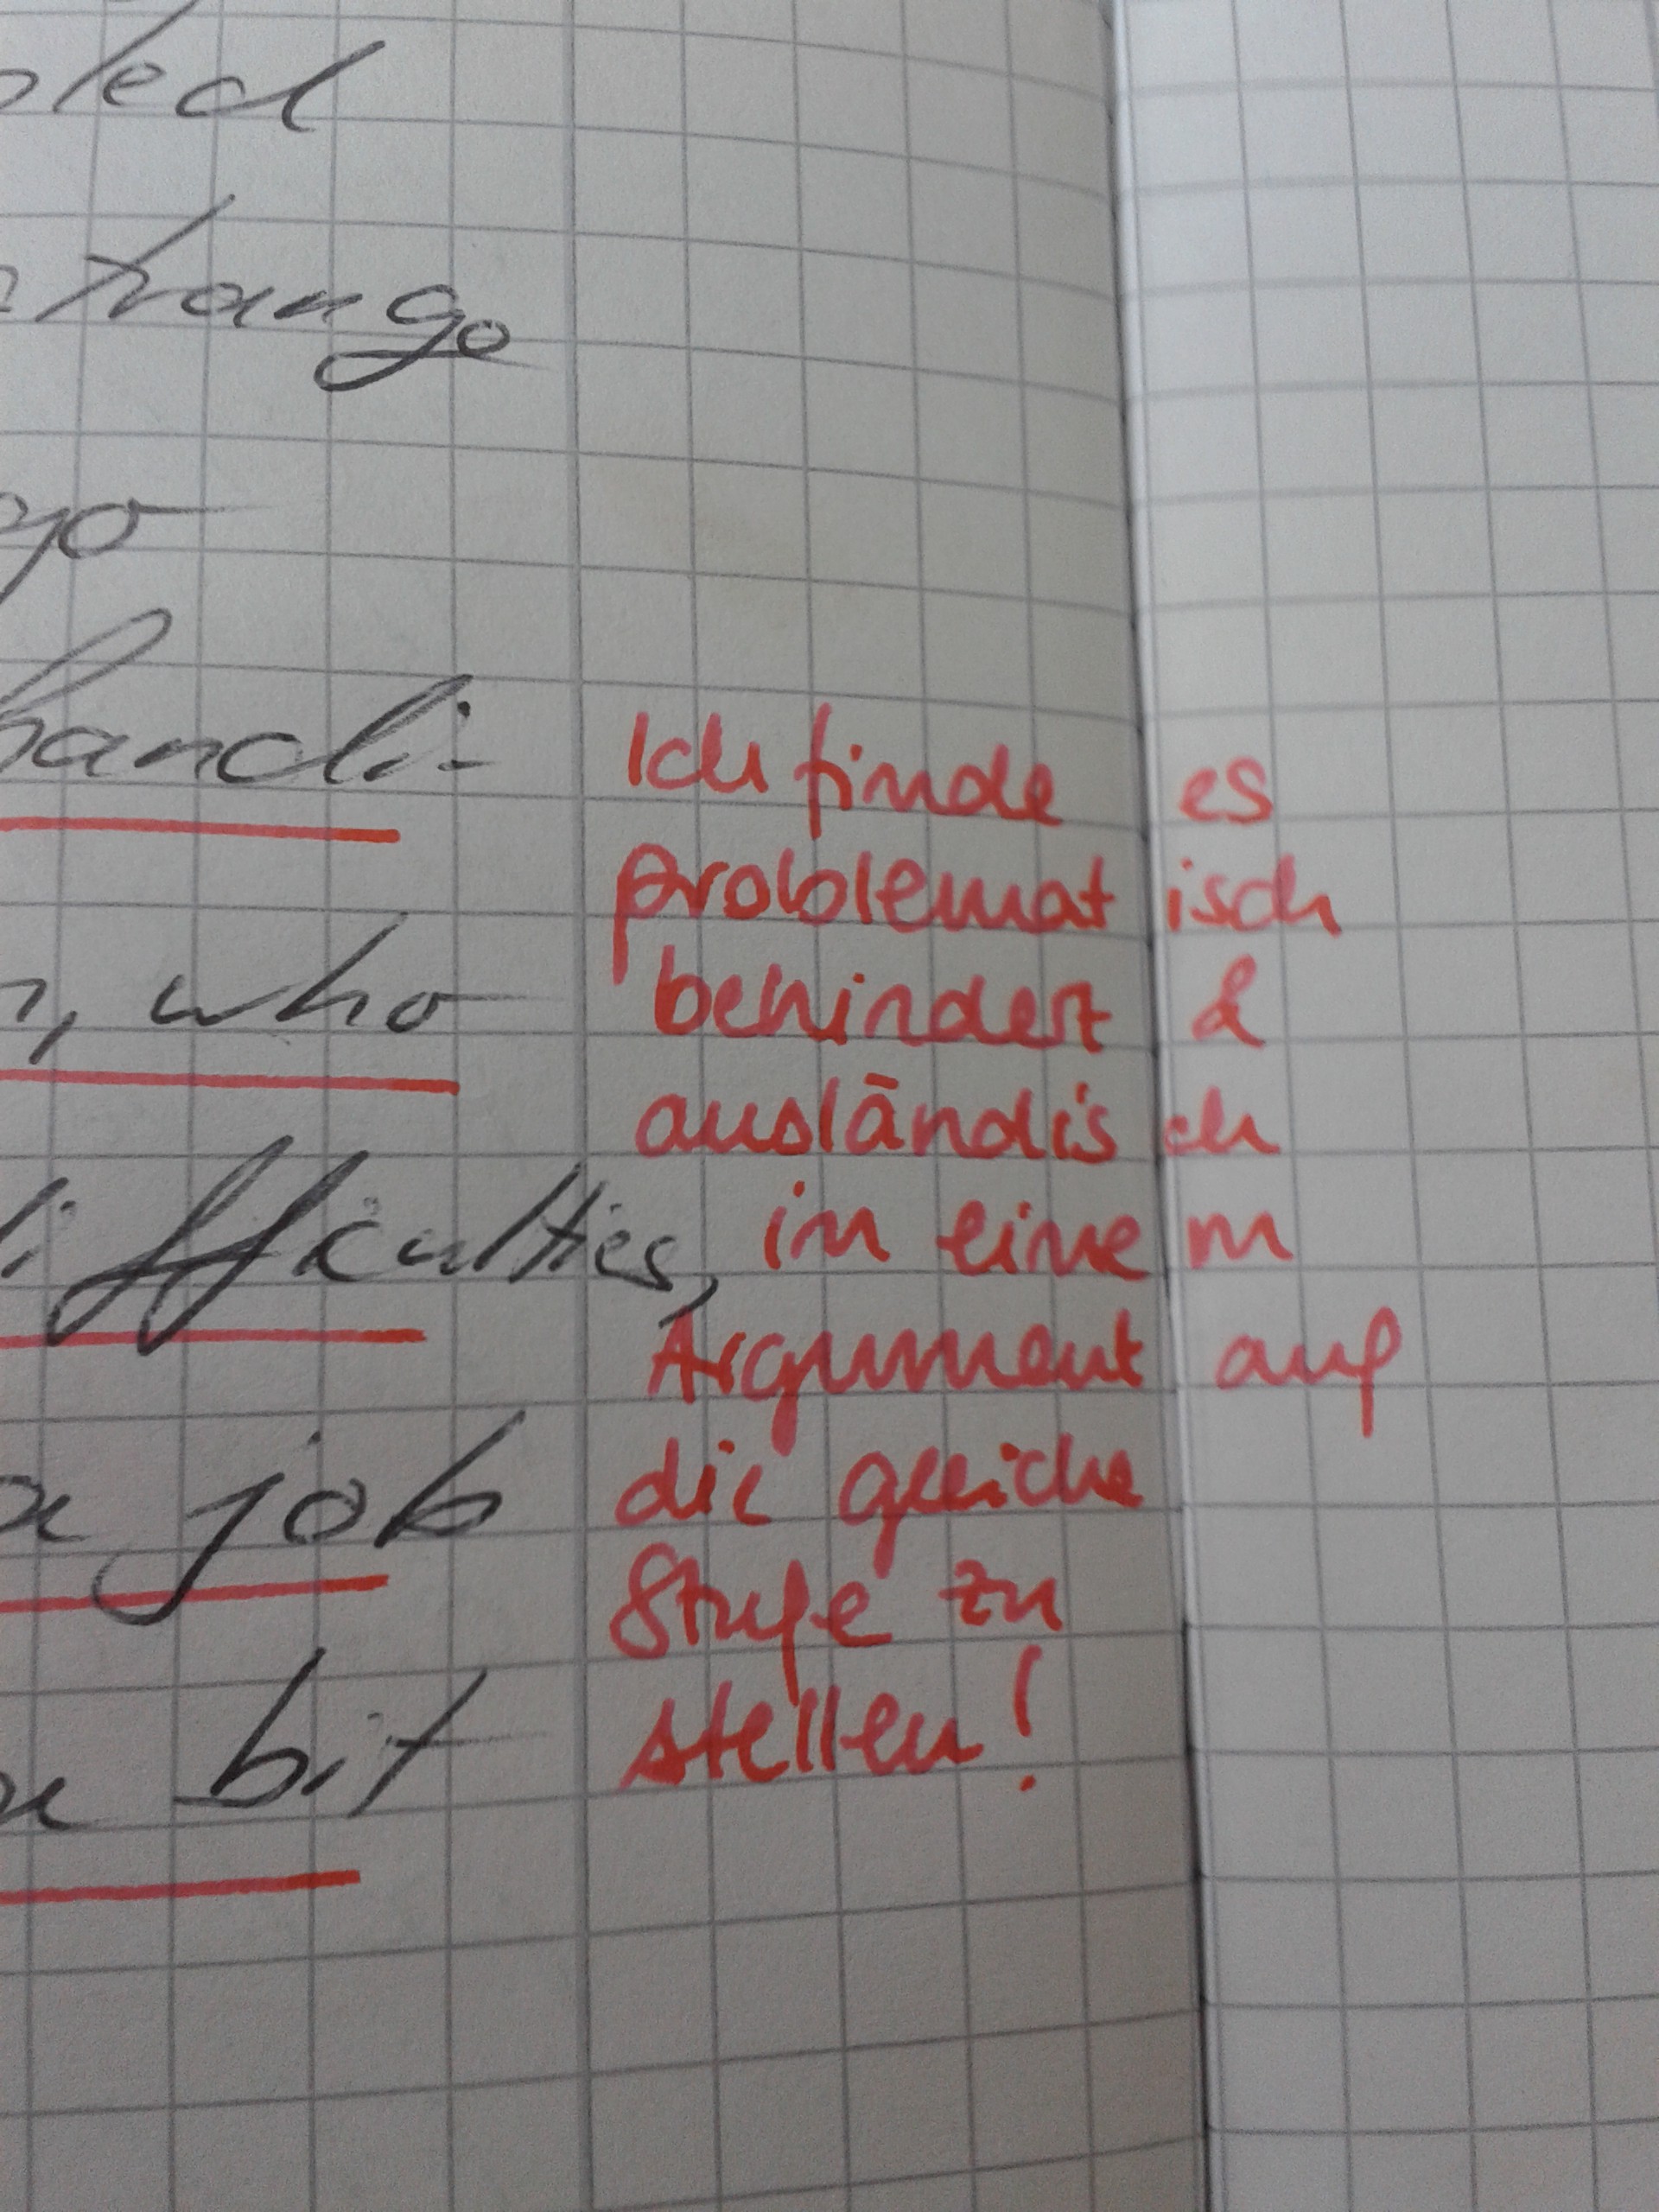 trango
handi-
, who
difficulties,
a job
bit
Ich finde es
problematisch
behindert &
ausländisch
in einem
Argument auf
die gleiche
Stufe zu
stellen!